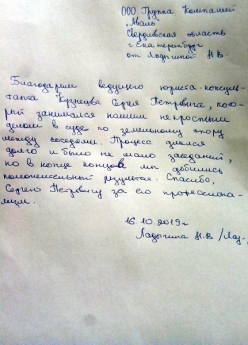 ООО Группа Компаний
"Маль
Свердловская область
г Екатеринбург
от Ладыгиной Н.В
Благодарим ведущего юриста-консуль-
танта Кузнецова Сергея Петровича, кото-
рый занимался нашим непростым
делом в суде по земельному спору
между соседями. Процесс длился
долго и было не мало заседаний,
но в конце концов мы добились
положительный результат. Спасибо,
Сергею Петровичу за его профессиона-
лизм.
16.10.2019г
Ладыгина Н.В /Лад.